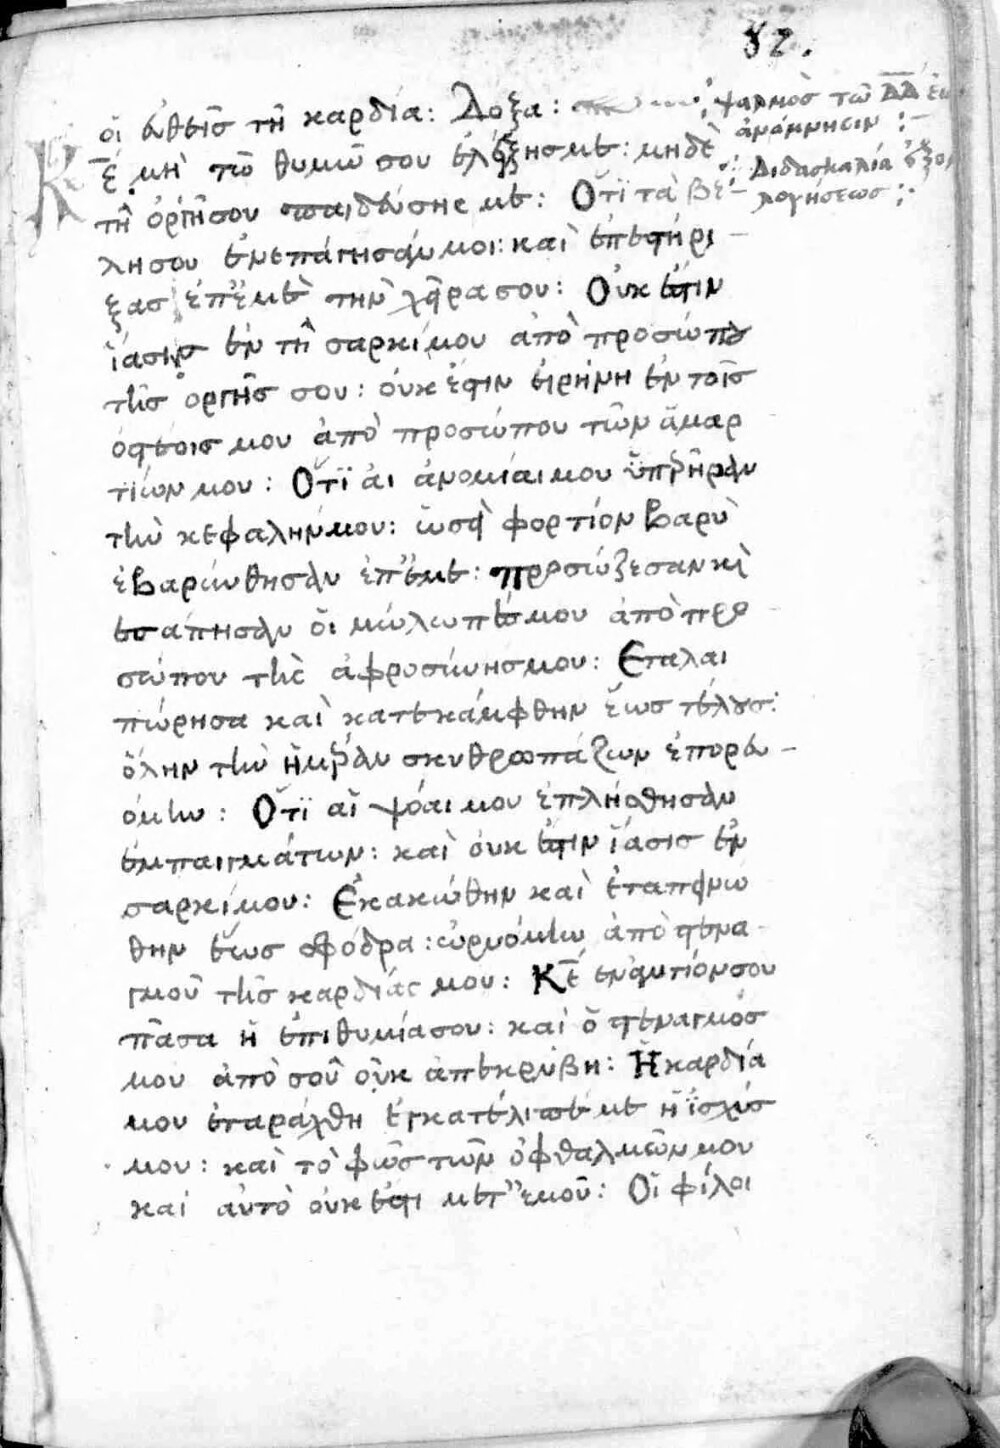 82.
οἱ εὐθεῖς τῇ καρδίᾳ: Δοξα: ψαλμὸς τῷ Δ̅Α̅Δ̅ εἰς
ἀνάμνησιν :-
Διδασκαλία ἐξομο
λογήσεως :
Κ̅Ε̅ μὴ τῷ θυμῷ σου ἐλέγξης με: μηδὲ
τῇ ὀργῇ σου παιδεύσης με: Ὅτι τὰ βέ-
λη σου ἐνεπάγησάν μοι: καὶ ἐπεστήρι-
ξας ἐπ' ἐμὲ τὴν χεῖρα σου: Οὐκ ἔστιν
ἴασις ἐν τῇ σαρκί μου ἀπὸ προσώπου
τῆς ὀργῆς σου: οὐκ ἔστιν εἰρήνη ἐν τοῖς
ὀστέοις μου ἀπὸ προσώπου τῶν ἁμαρ
τιῶν μου: Ὅτι αἱ ἀνομίαι μου ὑπερῆραν
τὴν κεφαλήν μου: ὡσεὶ φορτίον βαρὺ
ἐβαρύνθησαν ἐπ' ἐμέ: προσώζεσαν καὶ
ἐσάπησαν οἱ μώλωπές μου ἀπὸ προ
σώπου τῆς ἀφροσύνης μου: Εταλαι
πώρησα καὶ κατεκάμφθην ἕως τέλους:
ὅλην τὴν ἡμέραν σκυθρωπάζων ἐπορευ-
όμην: Ὅτι αἱ ψόαι μου ἐπλήσθησαν
ἐμπαιγμάτων: καὶ οὐκ ἔστιν ἴασις ἐν
σαρκί μου: Ἐκακώθην καὶ ἐταπεινώ
θην ἕως σφόδρα: ὠρυόμην ἀπὸ στενα-
γμοῦ τῆς καρδίας μου: Κ̅Ε̅ ἐναντίον σου
πᾶσα ἡ ἐπιθυμία σου: καὶ ὁ στεναγμός
μου ἀπὸ σοῦ οὐκ ἀπεκρύβη: Ἡ καρδία
μου ἐταράχθη ἐγκατέλιπέ με ἡ ἰσχύς
μου: καὶ τὸ φῶς τῶν ὀφθαλμῶν μου
καὶ αὐτὸ οὐκ ἔστι μετ' ἐμοῦ: Οἱ φίλοι